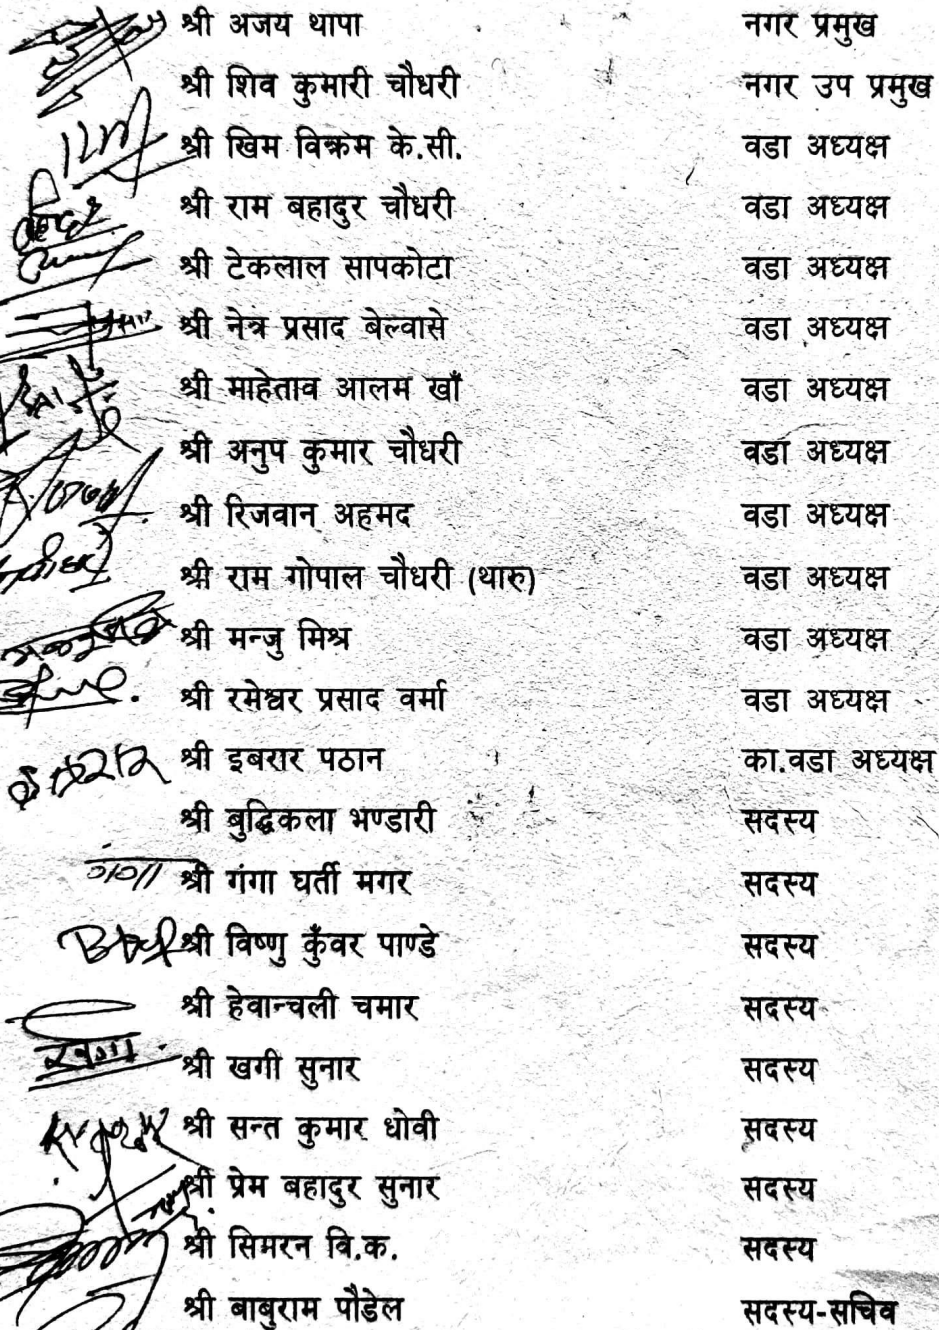 श्री अजय थापा नगर प्रमुख
श्री शिव कुमारी चौधरी नगर उप प्रमुख
श्री खिम विक्रम के.सी. वडा अध्यक्ष
श्री राम बहादुर चौधरी वडा अध्यक्ष
श्री टेकलाल सापकोटा वडा अध्यक्ष
श्री नेत्र प्रसाद बेल्वासे वडा अध्यक्ष
श्री माहेताव आलम खाँ वडा अध्यक्ष
श्री अनुप कुमार चौधरी वडा अध्यक्ष
श्री रिजवान अहमद वडा अध्यक्ष
श्री राम गोपाल चौधरी (थारु) वडा अध्यक्ष
श्री मन्जु मिश्र वडा अध्यक्ष
श्री रमेश्वर प्रसाद वर्मा वडा अध्यक्ष
श्री इबरार पठान का.वडा अध्यक्ष
श्री बुद्धिकला भण्डारी सदस्य
गंगा श्री गंगा घर्ती मगर सदस्य
श्री विष्णु कुँवर पाण्डे सदस्य
श्री हेवान्चली चमार सदस्य
श्री खगी सुनार सदस्य
श्री सन्त कुमार धोवी सदस्य
श्री प्रेम बहादुर सुनार सदस्य
श्री सिमरन वि.क. सदस्य
श्री बाबुराम पौडेल सदस्य-सचिव